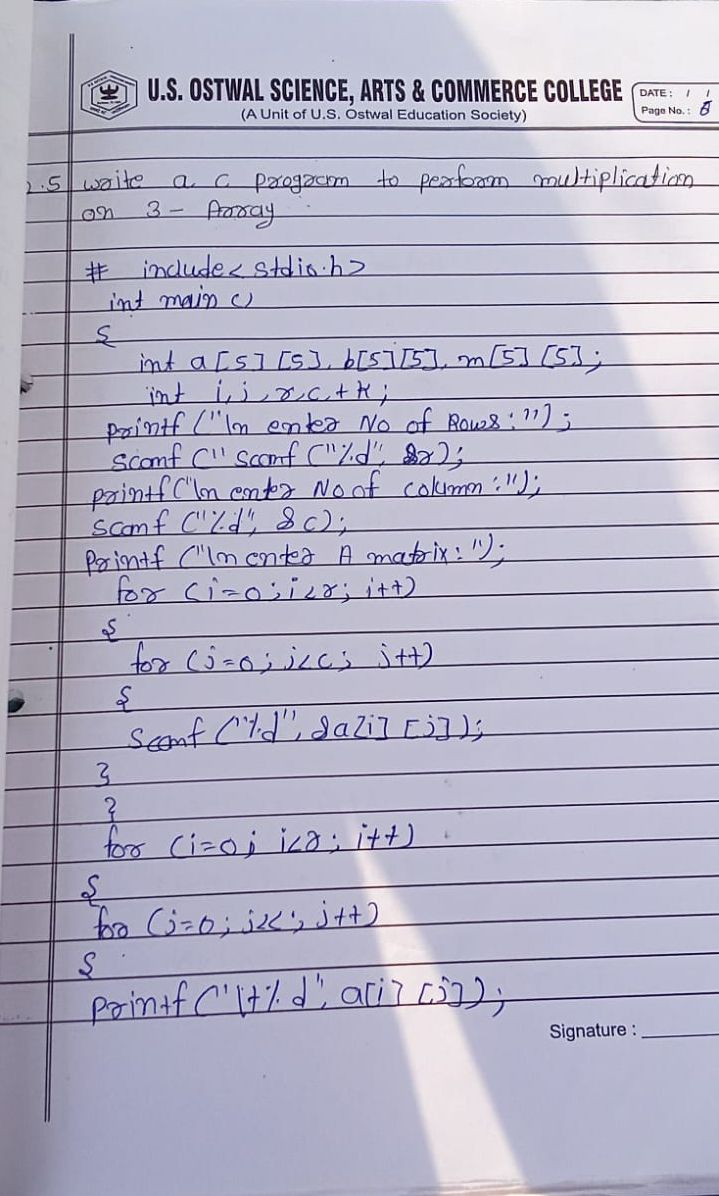 U.S. OSTWAL SCIENCE, ARTS & COMMERCE COLLEGE
(A Unit of U.S. Ostwal Education Society)
DATE: / /
Page No.: 8
.5 write a c program to perform multiplication
on 3 - Array
# include< stdio.h>
int main ()
{
int a [5] [5], b[5][5], m[5] [5];
int i, j, r, c, t k;
printf ("\n enter No of Rows: ");
scanf (" scanf ("%d", &r);
printf ("\n enter No of column :");
scanf ("%d", &c);
Printf ("\n enter A matrix: ");
for (i=0; i<r; i++)
{
for (j=0; j<c; j++)
{
Scanf ("%d", &a[i] [j]);
}
}
for (i=0; i<r; i++)
{
for (j=0; j<c; j++)
{
printf ("\t%d", a[i] [j]);
Signature :